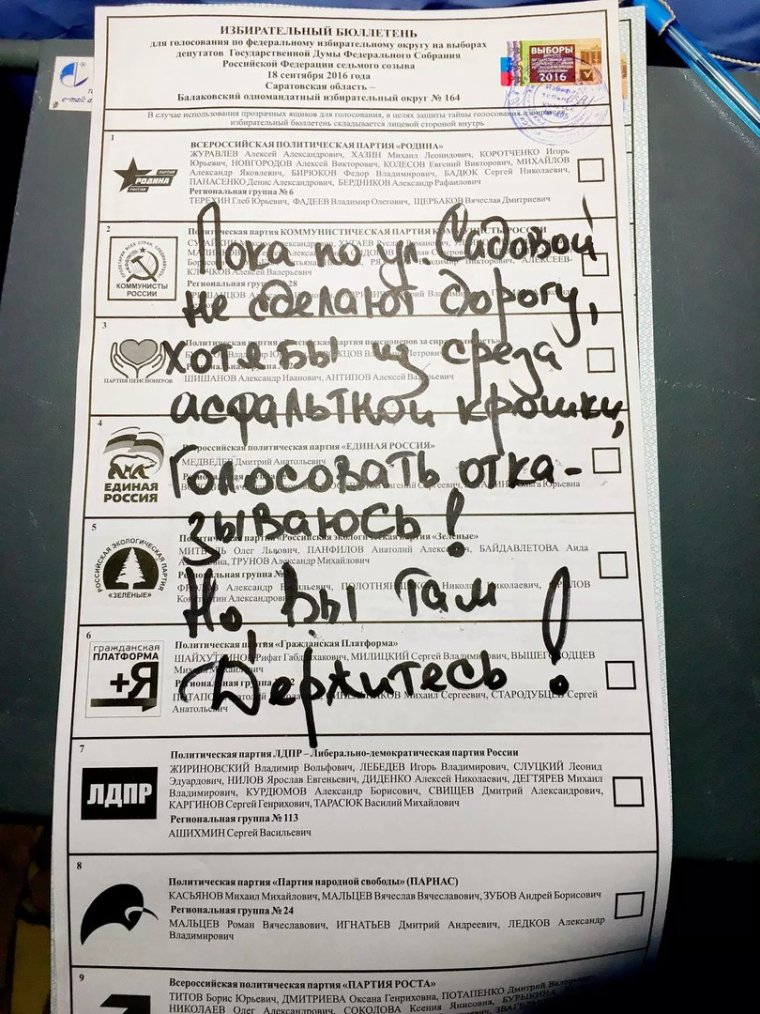 ИЗБИРАТЕЛЬНЫЙ БЮЛЛЕТЕНЬ
для голосования по федеральному избирательному округу на выборах
депутатов Государственной Думы Федерального Собрания
Российской Федерации седьмого созыва
18 сентября 2016 года
Саратовская область –
Балаковский одномандатный избирательный округ № 164
ВЫБОРЫ
2016
В случае использования прозрачных ящиков для голосования, в целях защиты тайны голосования
избирательный бюллетень складывается лицевой стороной внутрь
1
РОДИНА
ВСЕРОССИЙСКАЯ ПОЛИТИЧЕСКАЯ ПАРТИЯ «РОДИНА»
ЖУРАВЛЕВ Алексей Александрович, ХАЗИН Михаил Леонидович, КОРОТЧЕНКО Игорь
Юрьевич, НОВГОРОДОВ Алексей Викторович, КОЛЕСОВ Евгений Викторович, МИХАЙЛОВ
Александр Яковлевич, БИРЮКОВ Федор Владимирович, БАДЮК Сергей Николаевич,
ПАНАСЕНКО Денис Александрович, БЕРДНИКОВ Александр Рафаилович
Региональная группа № 6
ТЕРЕХИН Глеб Юрьевич, ФАДЕЕВ Владимир Олегович, ЩЕРБАКОВ Вячеслав Дмитриевич
2
КОММУНИСТЫ
РОССИИ
Политическая партия КОММУНИСТИЧЕСКАЯ ПАРТИЯ КОММУНИСТЫ РОССИИ
Пока по ул. Садовой
не сделают дорогу,
хотя бы из среза
асфальтной крошки,
Голосовать отка-
зываюсь!
Но Вы там
Держитесь!
3
ПАРТИЯ ПЕНСИОНЕРОВ
ШИШАНОВ Александр Иванович, АНТИПОВ Алексей
4
ЕДИНАЯ
РОССИЯ
Всероссийская политическая партия «ЕДИНАЯ РОССИЯ»
МЕДВЕДЕВ Дмитрий Анатольевич
5
РОССИЙСКАЯ ЭКОЛОГИЧЕСКАЯ ПАРТИЯ
«ЗЕЛЁНЫЕ»
Политическая партия «Российская экологическая партия «Зелёные»
Олег Львович, ПАНФИЛОВ Анатолий БАЙДАВЛЕТОВА Аида
ТРУНОВ Александр Михайлович
Региональная группа
Александр
6
ГРАЖДАНСКАЯ
ПЛАТФОРМА
+Я
Политическая партия «Гражданская Платформа»
Рифат МИЛИЦКИЙ Сергей Владимирович,
Михаил Сергеевич, СТАРОДУБЦЕВ Сергей
Анатольевич
7
ЛДПР
Политическая партия ЛДПР – Либерально-демократическая партия России
ЖИРИНОВСКИЙ Владимир Вольфович, ЛЕБЕДЕВ Игорь Владимирович, СЛУЦКИЙ Леонид
Эдуардович, НИЛОВ Ярослав Евгеньевич, ДИДЕНКО Алексей Николаевич, ДЕГТЯРЕВ Михаил
Владимирович, КУРДЮМОВ Александр Борисович, СВИЩЕВ Дмитрий Александрович,
КАРГИНОВ Сергей Генрихович, ТАРАСЮК Василий Михайлович
Региональная группа № 113
АШИХМИН Сергей Васильевич
8
Политическая партия «Партия народной свободы» (ПАРНАС)
КАСЬЯНОВ Михаил Михайлович, МАЛЬЦЕВ Вячеслав Вячеславович, ЗУБОВ Андрей Борисович
Региональная группа № 24
МАЛЬЦЕВ Роман Вячеславович, ИГНАТЬЕВ Дмитрий Андреевич, ЛЕДКОВ Александр
Владимирович
9
Всероссийская политическая партия «ПАРТИЯ РОСТА»
ТИТОВ Борис Юрьевич, ДМИТРИЕВА Оксана Генриховна, ПОТАПЕНКО Дмитрий
НИКОЛАЕВ Олег Александрович, СОКОЛОВА Ксения Янисовна,